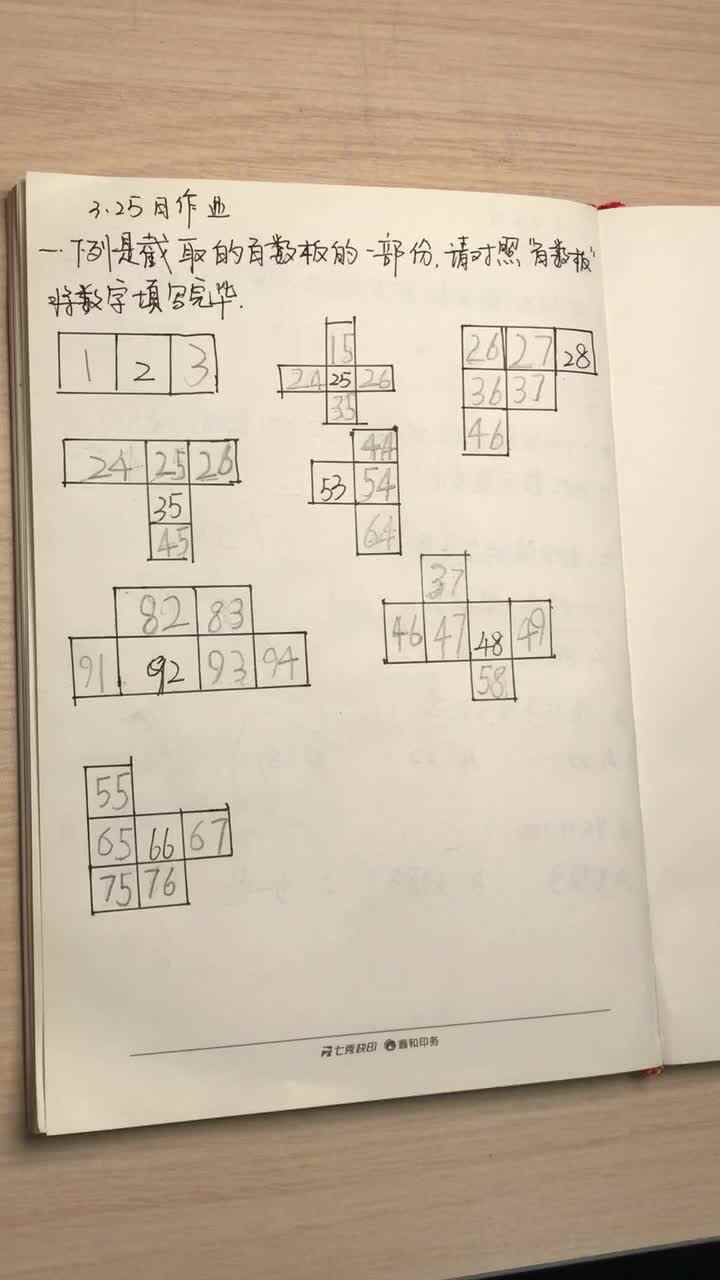 3.25日作业
一.下列是截取的百数板的一部份.请对照"百数板"
将数字填写完毕.
1 2 3
15
24 25 26
35
26 27 28
36 37
46
24 25 26
35
45
44
53 54
64
82 83
91 92 93 94
37
46 47 48 49
58
55
65 66 67
75 76
七秀快印 鑫和印务